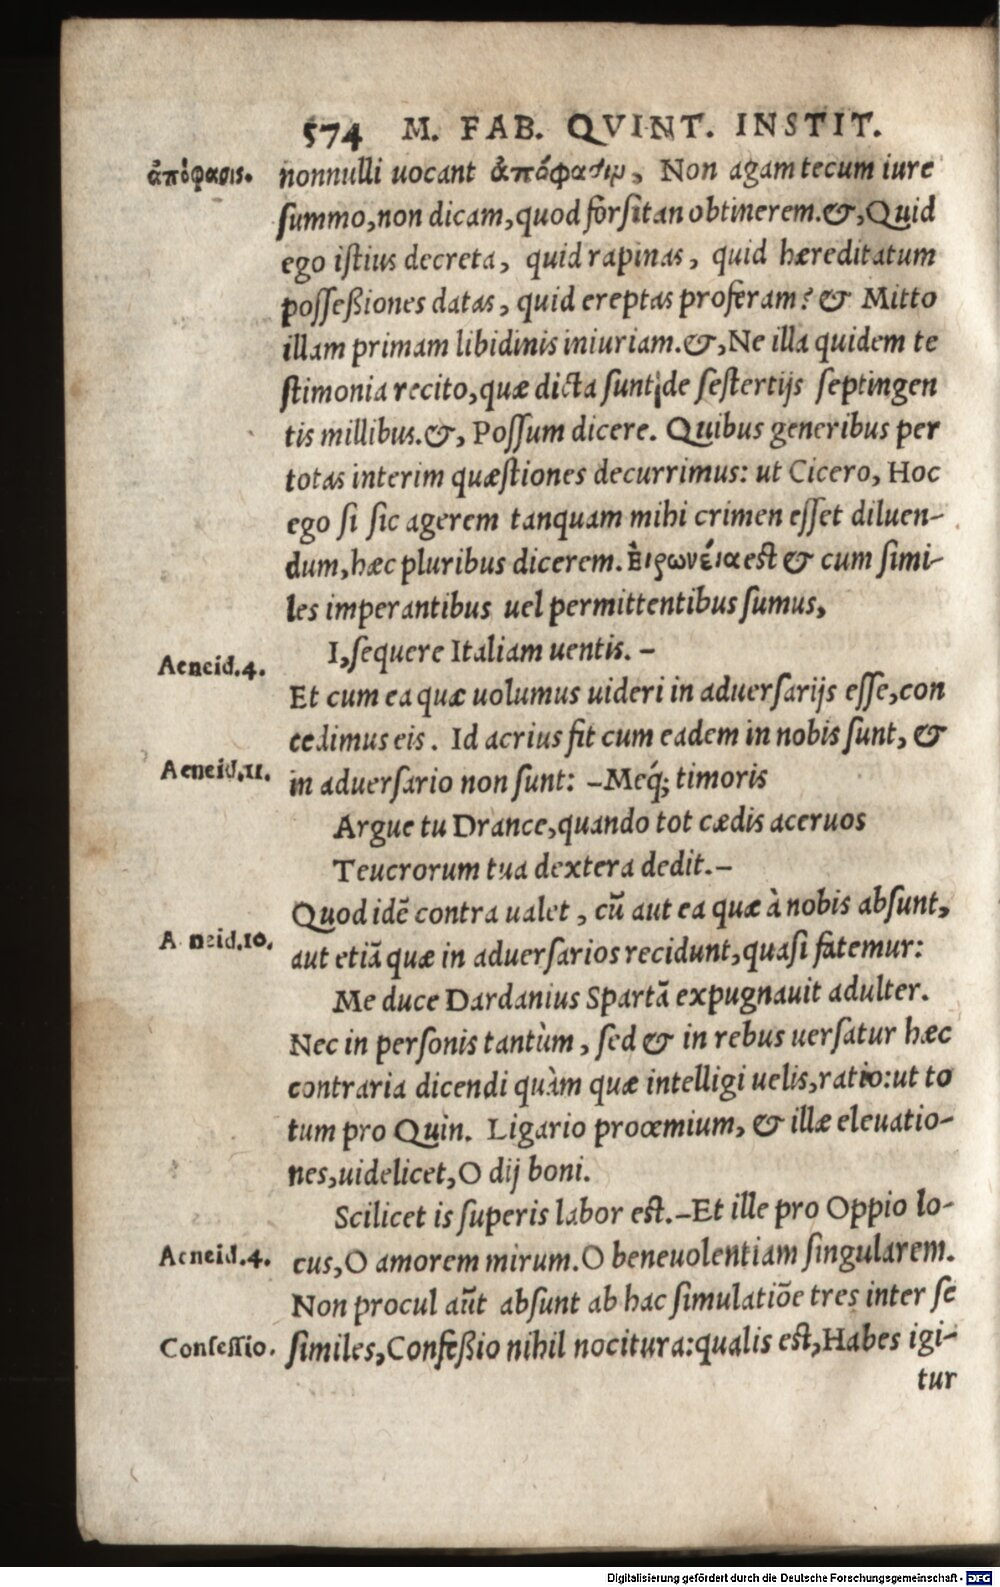 574 M. FAB. QVINT. INSTIT.
ἀπόφασις. nonnulli uocant ἀπόφασιν, Non agam tecum iure
ſummo,non dicam,quod forſitan obtinerem.&,Quid
ego iſtius decreta, quid rapinas, quid hæreditatum
poſſeßiones datas, quid ereptas proferam? & Mitto
illam primam libidinis iniuriam.&,Ne illa quidem te
ſtimonia recito,quæ dicta ſunt de ſeſtertijs ſeptingen
tis millibus.&, Poſſum dicere. Quibus generibus per
totas interim quæſtiones decurrimus: ut Cicero, Hoc
ego ſi ſic agerem tanquam mihi crimen eſſet diluen-
dum,hæc pluribus dicerem. Ἐιρωνέια est & cum ſimi-
les imperantibus uel permittentibus ſumus,
Aeneid.4. I,ſequere Italiam uentis. –
Et cum ea quæ uolumus uideri in aduerſarijs eſſe,con
cedimus eis. Id acrius fit cum eadem in nobis ſunt, &
Aeneid.11. in aduerſario non ſunt: –Meq́; timoris
Argue tu Drance,quando tot cædis aceruos
Teucrorum tua dextera dedit.–
Quod idē contra ualet, cū aut ea quæ à nobis abſunt,
Aeneid.10. aut etiā quæ in aduerſarios recidunt,quaſi fatemur:
Me duce Dardanius Spartā expugnauit adulter.
Nec in perſonis tantùm, ſed & in rebus uerſatur hæc
contraria dicendi quàm quæ intelligi uelis,ratio:ut to
tum pro Quin. Ligario proœmium, & illæ eleuatio-
nes,uidelicet,O dij boni.
Scilicet is ſuperis labor eſt.–Et ille pro Oppio lo-
Aeneid.4. cus,O amorem mirum.O beneuolentiam ſingularem.
Non procul aūt abſunt ab hac ſimulatiōe tres inter ſe
Confeſſio. ſimiles,Confeßio nihil nocitura:qualis eſt,Habes igi-
tur
Digitalisierung gefördert durch die Deutsche Forschungsgemeinschaft - DFG